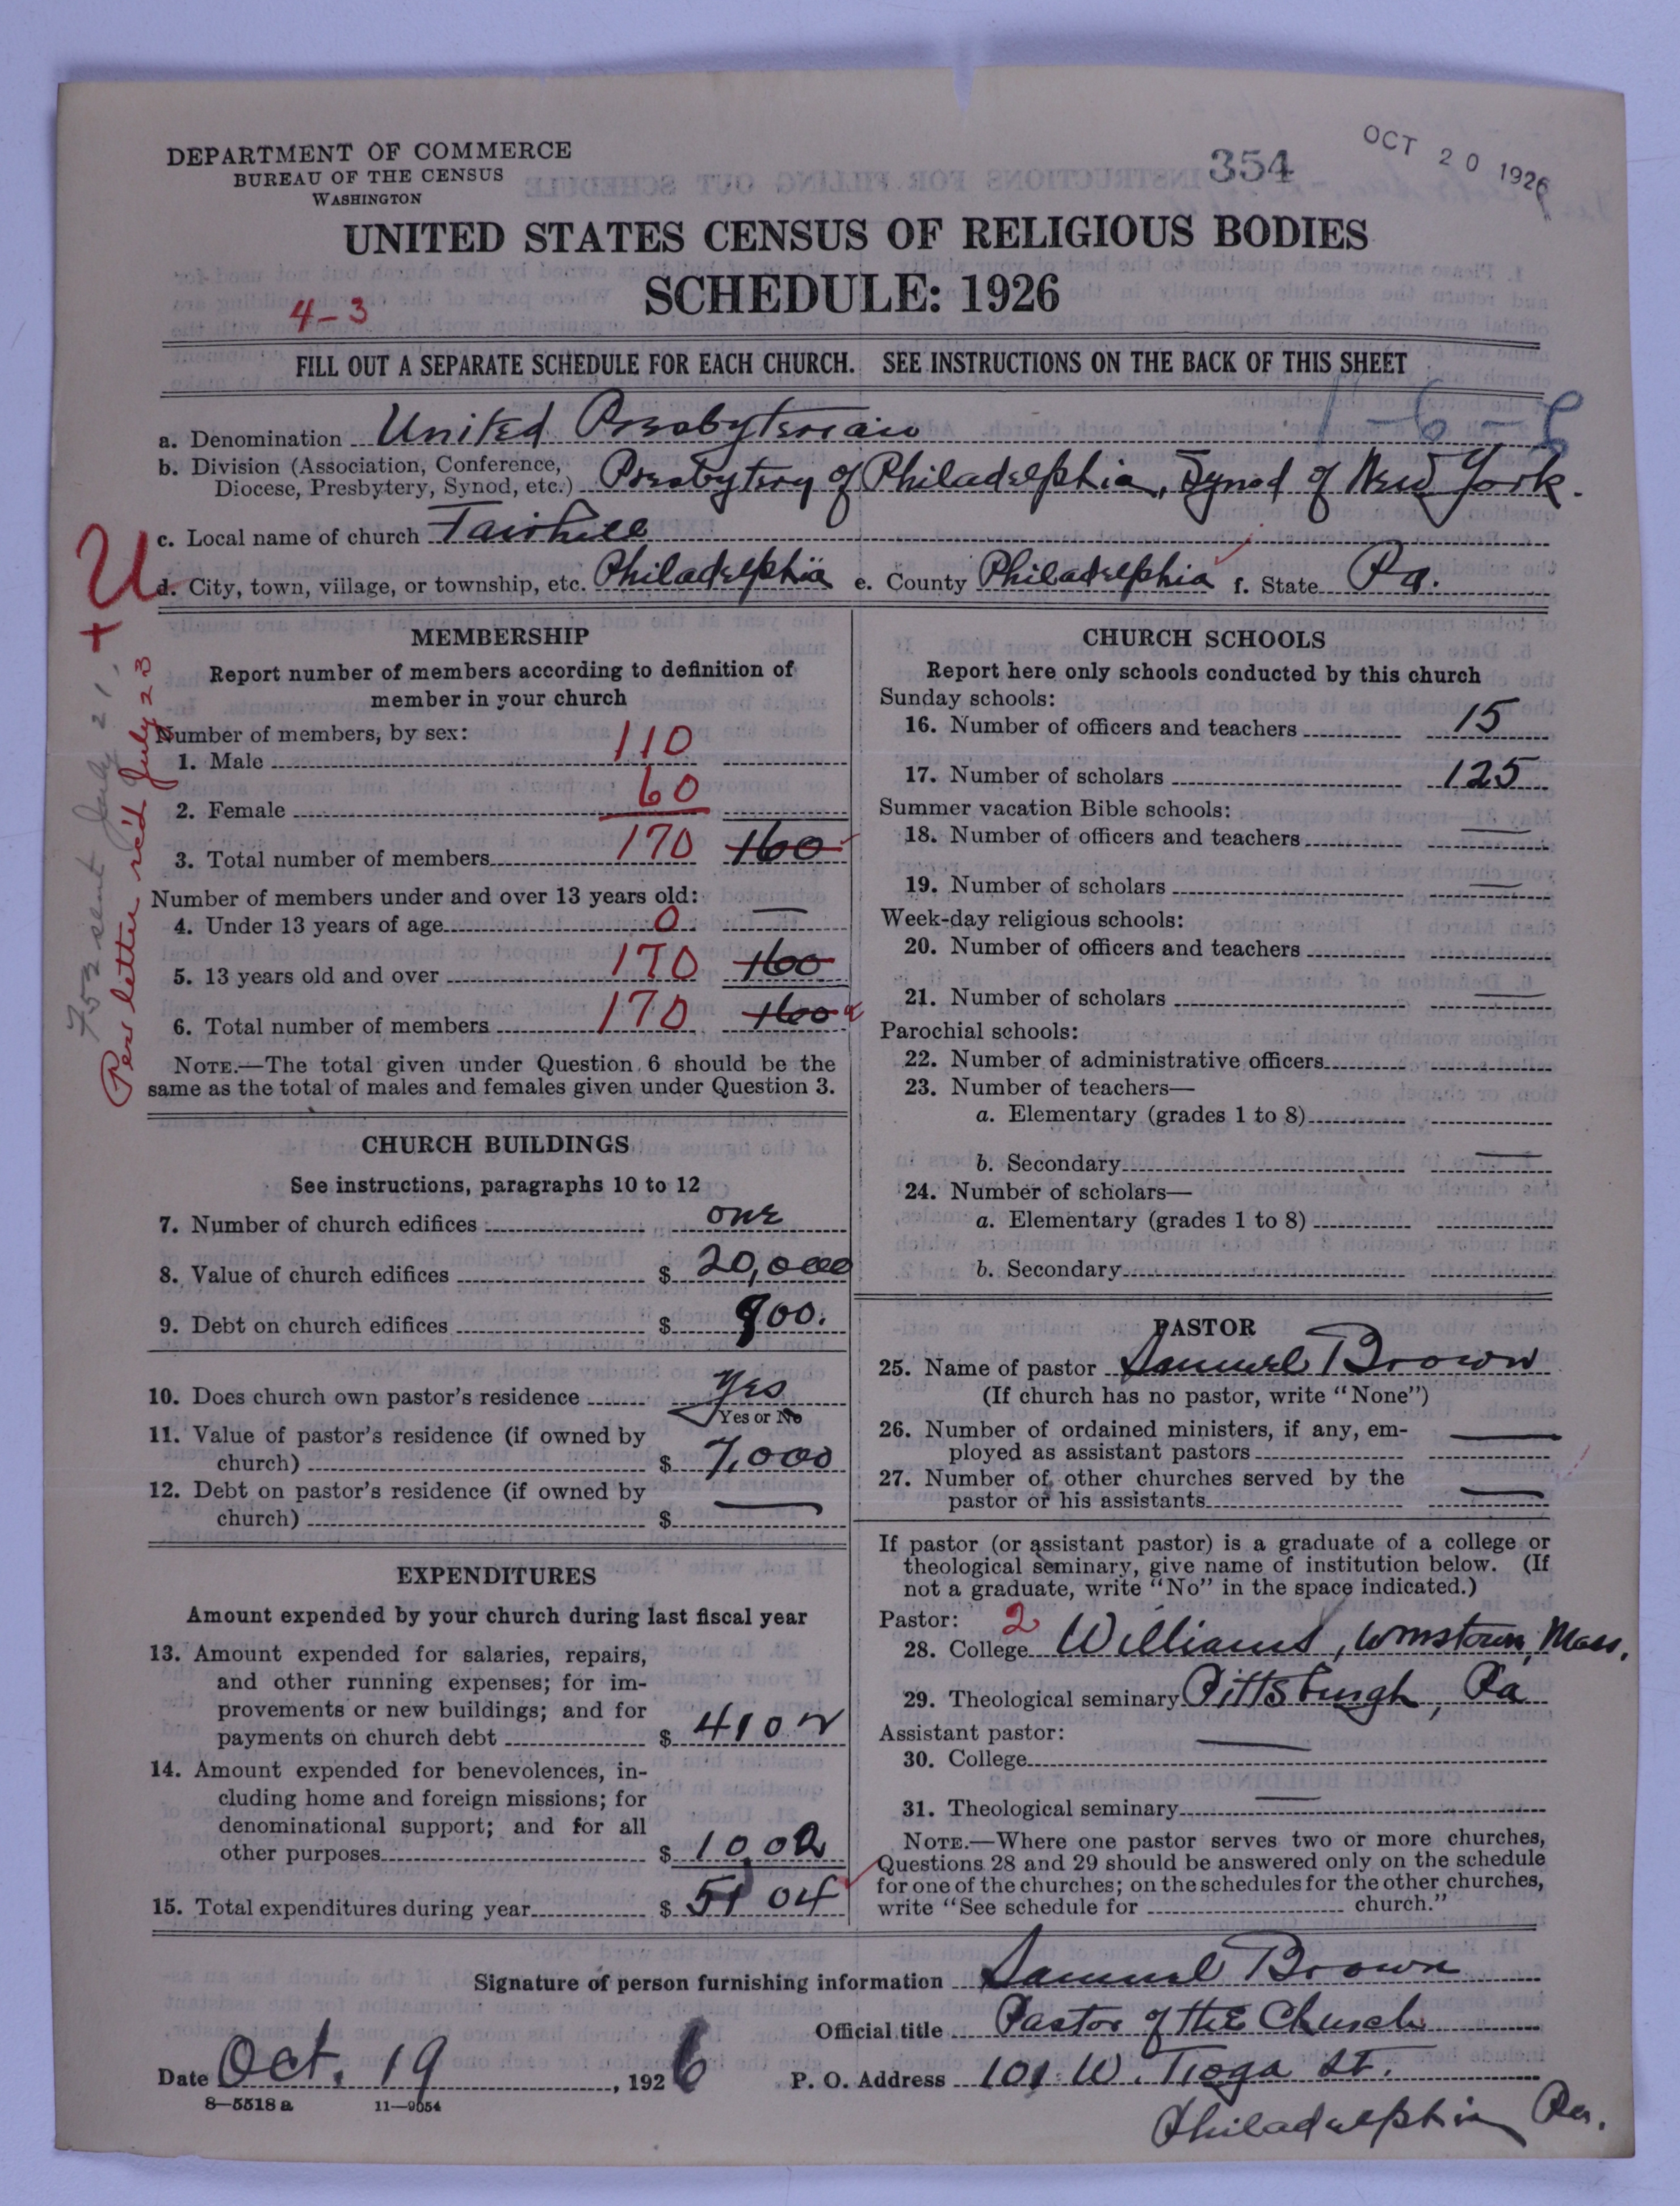 DEPARTMENT OF COMMERCE
BUREAU OF THE CENSUS
WASHINGTON
354
OCT 20 1926
UNITED STATES CENSUS OF RELIGIOUS BODIES
SCHEDULE: 1926
4-3
FILL OUT A SEPARATE SCHEDULE FOR EACH CHURCH. SEE INSTRUCTIONS ON THE BACK OF THIS SHEET
a. Denomination United Presbyterian
b. Division (Association, Conference,
Diocese, Presbytery, Synod, etc.) Presbytery of Philadelphia, Synod of New York.
c. Local name of church Fairhill
d. City, town, village, or township, etc. Philadelphia e. County Philadelphia f. State Pa.
U
+
752 sent July 21,
Per letter rc'd July 23
MEMBERSHIP
Report number of members according to definition of
member in your church
Number of members, by sex:
1. Male 110
2. Female 60
3. Total number of members 170 160
Number of members under and over 13 years old:
4. Under 13 years of age 0 —
5. 13 years old and over 170 160
6. Total number of members 170 160
NOTE.—The total given under Question 6 should be the
same as the total of males and females given under Question 3.
CHURCH BUILDINGS
See instructions, paragraphs 10 to 12
7. Number of church edifices one
8. Value of church edifices $ 20,000
9. Debt on church edifices $ 900.
10. Does church own pastor's residence Yes
Yes or No
11. Value of pastor's residence (if owned by
church) $ 7,000
12. Debt on pastor's residence (if owned by
church) $ —
EXPENDITURES
Amount expended by your church during last fiscal year
13. Amount expended for salaries, repairs,
and other running expenses; for im-
provements or new buildings; and for
payments on church debt $ 4102
14. Amount expended for benevolences, in-
cluding home and foreign missions; for
denominational support; and for all
other purposes $ 1002
15. Total expenditures during year $ 5104
CHURCH SCHOOLS
Report here only schools conducted by this church
Sunday schools:
16. Number of officers and teachers 15
17. Number of scholars 125
Summer vacation Bible schools:
18. Number of officers and teachers —
19. Number of scholars —
Week-day religious schools:
20. Number of officers and teachers
21. Number of scholars —
Parochial schools:
22. Number of administrative officers
23. Number of teachers—
a. Elementary (grades 1 to 8)
b. Secondary —
24. Number of scholars—
a. Elementary (grades 1 to 8)
b. Secondary
PASTOR
25. Name of pastor Samuel Brown
(If church has no pastor, write "None")
26. Number of ordained ministers, if any, em-
ployed as assistant pastors —
27. Number of other churches served by the
pastor or his assistants —
If pastor (or assistant pastor) is a graduate of a college or
theological seminary, give name of institution below. (If
not a graduate, write "No" in the space indicated.)
Pastor: 2
28. College Williams, Wmstown, Mass.
29. Theological seminary Pittsburgh, Pa
Assistant pastor:
30. College —
31. Theological seminary —
NOTE.—Where one pastor serves two or more churches,
Questions 28 and 29 should be answered only on the schedule
for one of the churches; on the schedules for the other churches,
write "See schedule for church."
Signature of person furnishing information Samuel Brown
Official title Pastor of the Church
Date Oct. 19, 1926 P. O. Address 101 W. Tioga St.
Philadelphia Pa.
8—5518 a 11—9054